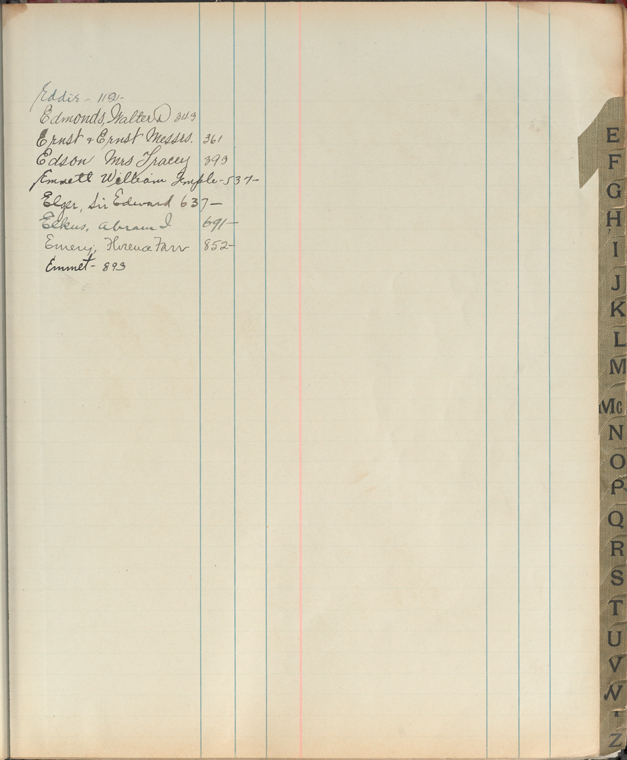 Eddis - 1191-
Edmonds, Walter D 343
Ernst + Ernst Messrs. 361
Edson Mrs Tracey 393
Emmett William Temple - 537-
Elger, Sir Edward 637-
Elkus, Abram I 691-
Emery, Florence Farr 852-
Emmet - 893
E
F
G
H
I
J
K
L
M
Mc
N
O
P
Q
R
S
T
U
V
W
Z